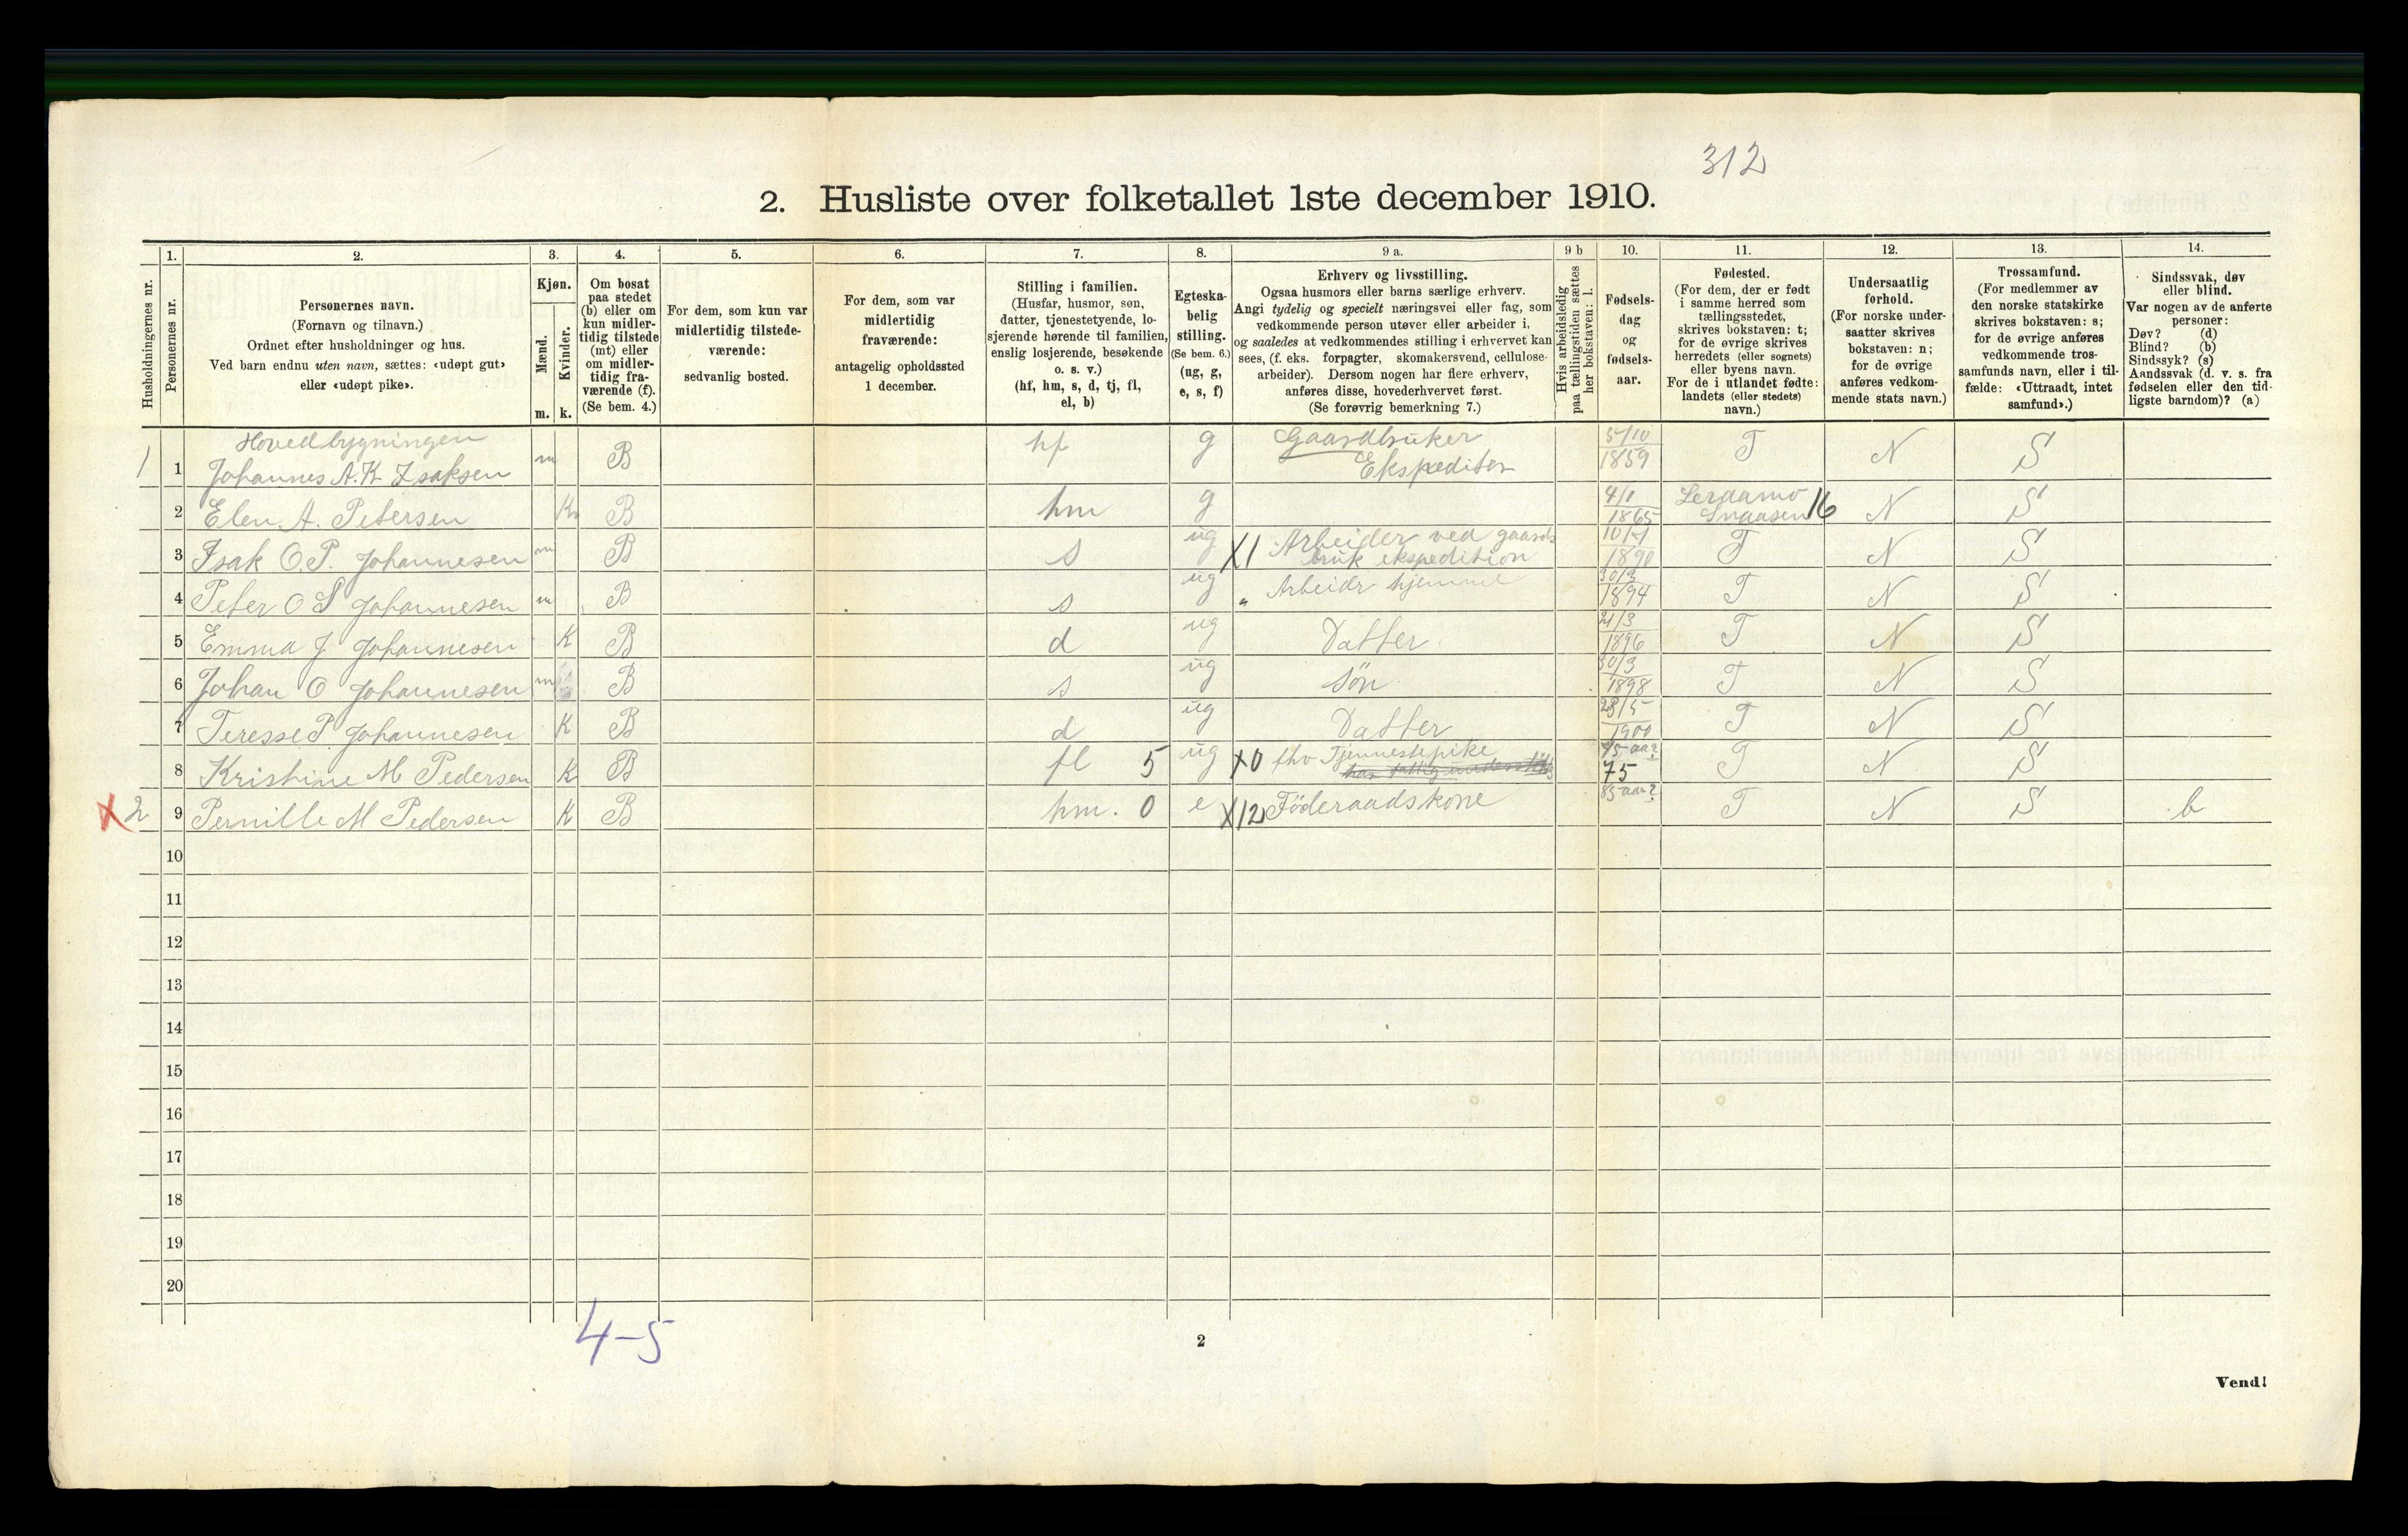 312
2. Husliste over folketallet 1ste december 1910.
Husholdningernes nr.
1.
Personernes nr.
2.
Personernes navn.
(Fornavn og tilnavn.)
Ordnet efter husholdninger og hus.
Ved barn endnu uten navn, sættes: «udøpt gut»
eller «udøpt pike».
3.
Kjøn.
Mænd.
Kvinder.
m. k.
4.
Om bosat
paa stedet
(b) eller om
kun midler-
tidig tilstede
(mt) eller
om midler-
tidig fra-
værende (f).
(Se bem. 4.)
5.
For dem, som kun var
midlertidig tilstede-
værende:
sedvanlig bosted.
6.
For dem, som var
midlertidig
fraværende:
antagelig opholdssted
1 december.
7.
Stilling i familien.
(Husfar, husmor, søn,
datter, tjenestetyende, lo-
sjerende hørende til familien,
enslig losjerende, besøkende
o. s. v.)
(hf, hm, s, d, tj, fl,
el, b)
8.
Egteska-
belig
stilling.
(Se bem. 6.)
(ug, g,
e, s, f)
9 a.
Erhverv og livsstilling.
Ogsaa husmors eller barns særlige erhverv.
Angi tydelig og specielt næringsvei eller fag, som
vedkommende person utøver eller arbeider i,
og saaledes at vedkommendes stilling i erhvervet kan
sees, (f. eks. forpagter, skomakersvend, cellulose-
arbeider). Dersom nogen har flere erhverv,
anføres disse, hovederhvervet først.
(Se forøvrig bemerkning 7.)
9 b
Hvis arbeidsledig
paa tællingstiden sættes
her bokstaven: l.
10.
Fødsels-
dag
og
fødsels-
aar.
11.
Fødested.
(For dem, der er født
i samme herred som
tællingsstedet,
skrives bokstaven: t;
for de øvrige skrives
herredets (eller sognets)
eller byens navn.
For de i utlandet fødte:
landets (eller stedets)
navn.)
12.
Undersaatlig
forhold.
(For norske under-
saatter skrives
bokstaven: n;
for de øvrige
anføres vedkom-
mende stats navn.)
13.
Trossamfund.
(For medlemmer av
den norske statskirke
skrives bokstaven: s;
for de øvrige anføres
vedkommende tros-
samfunds navn, eller i til-
fælde: «Uttraadt, intet
samfund».)
14.
Sindssvak, døv
eller blind.
Var nogen av de anførte
personer:
Døv? (d)
Blind? (b)
Sindssyk? (s)
Aandssvak (d. v. s. fra
fødselen eller den tid-
ligste barndom)? (a)
Hovedbygningen
1 1 Johannes A.K Isaksen m B hf g Gaardbruker Ekspeditør 5/10 1859 T N S
2 Elen A. Petersen K B hm g 1865 Snaasen 16 N S
3 Isak O.P. Johannesen m B s ug X1 Arbeider ved gaards bruk ekspedition 1890 T N S
4 Peter O S Johannesen m B s ug " Arbeidr hjemme 30/3 1894 T N S
5 Emma J Johannesen K B d ug Datter 21/3 1896 T N S
6 Johan O Johannesen m B s ug Søn 30/3 1898 T N S
7 Teresse P Johannesen K B d ug Datter 28/5 1900 T N S
8 Kristine M Pedersen K B fl 5 ug X0 fhv Tjennestepike 75 aar? 75 T N S
X 2 9 Pernille M Pedersen K B hm. 0 e X12 Föderaadskone 85 aar? T N S b
10
11
12
13
14
15
16
17
18
19
20
4-5
2
Vend!